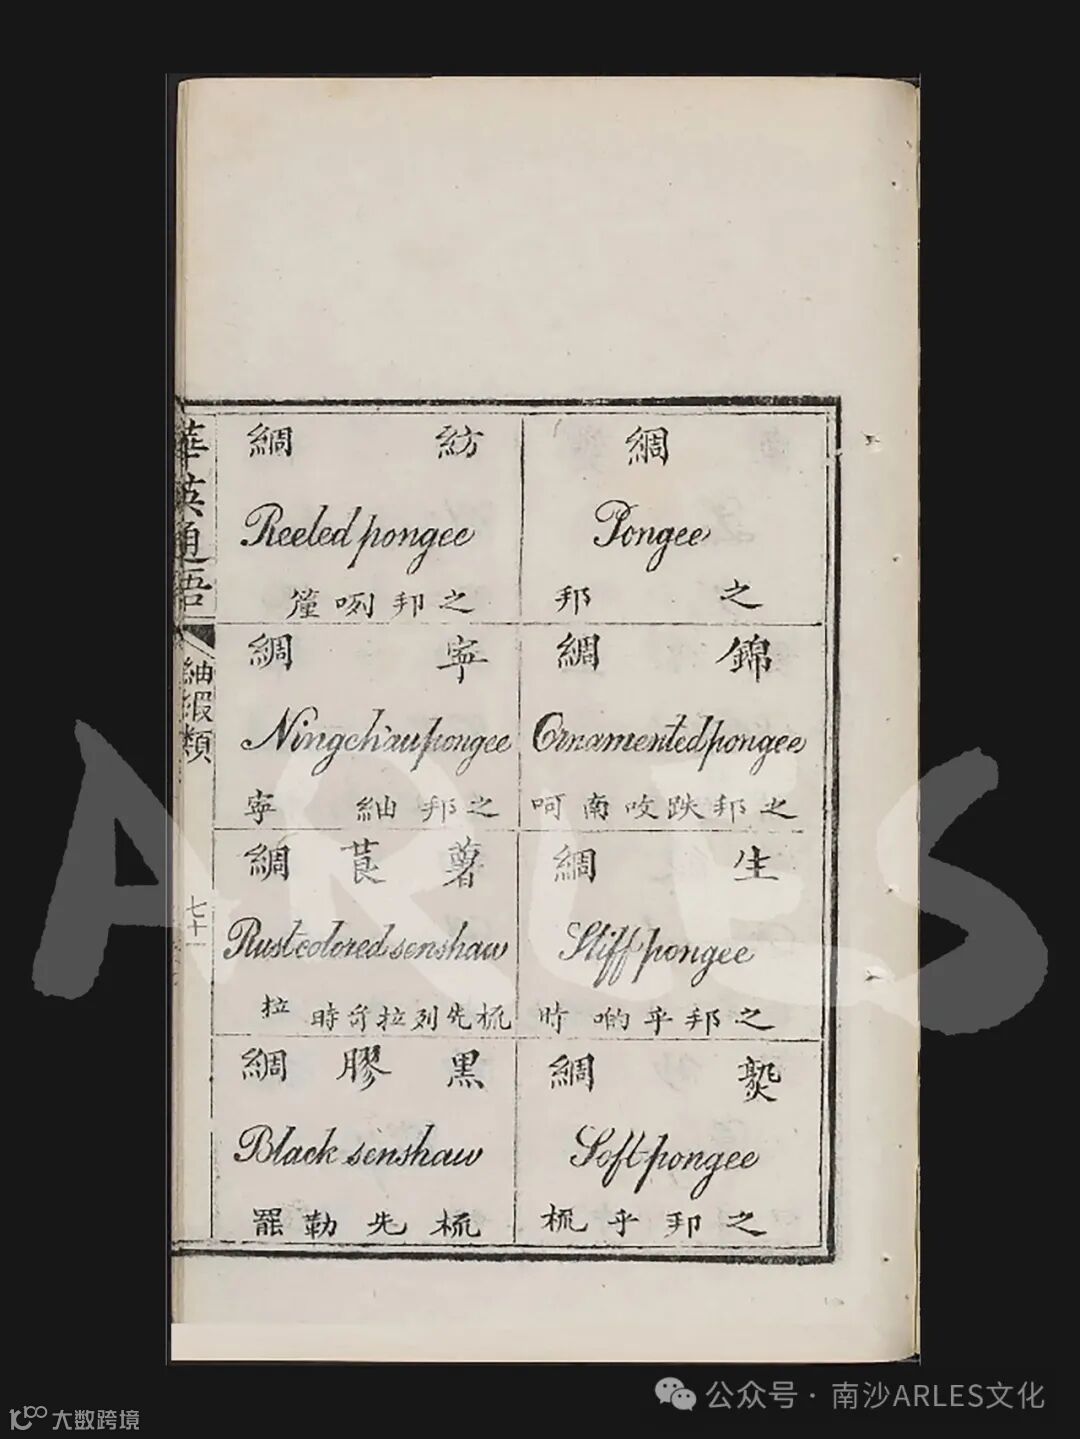 綢
Pongee
邦之
錦綢
Ornamented pongee
呵南咬跌邦之
生綢
Stiff pongee
時啲乎邦之
熟綢
Soft pongee
梳乎邦之
紡綢
Reeled pongee
咧邦之
寧綢
Ningchau pongee
寧紬邦之
薯莨綢
Rust colored senshaw
拉時拉列先梳
黑膠綢
Black senshaw
罷勒先梳
華英通語
紬緞類
七十一
ARLES
公众号 · 南沙ARLES文化
大数跨境